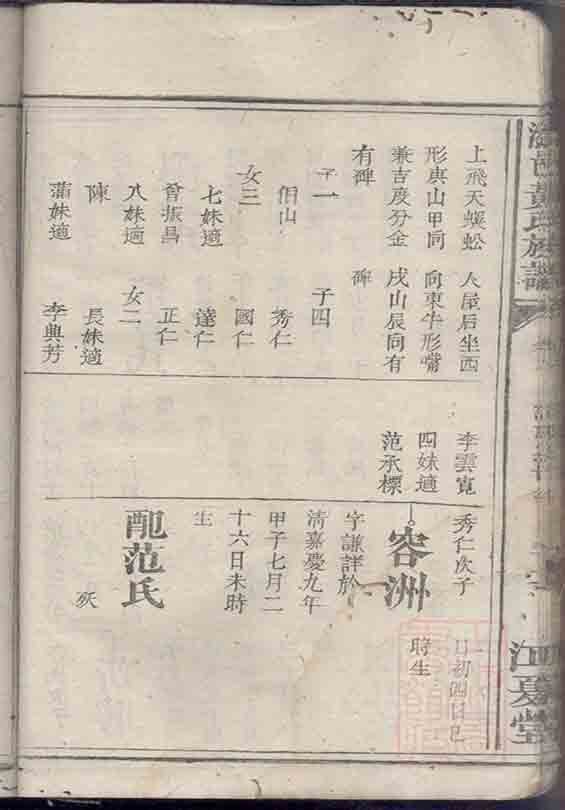 黃氏族譜
江夏堂
上飛天蜈蚣
形庚山甲同
兼吉度分金
有碑
子一
佀山
女三
七妹適
曾振昌
八妹適
陳
蒲妹適
人屋后坐西
向東牛形嘴
戌山辰同有
碑
子四
秀仁
國仁
達仁
正仁
女二
長妹適
李典芳
李雲寛
四妹適
范承標
秀仁次子
容洲
字謙詳於
清嘉慶九年
甲子七月二
十六日未時
生
配范氏
歿
初四日巳
時生